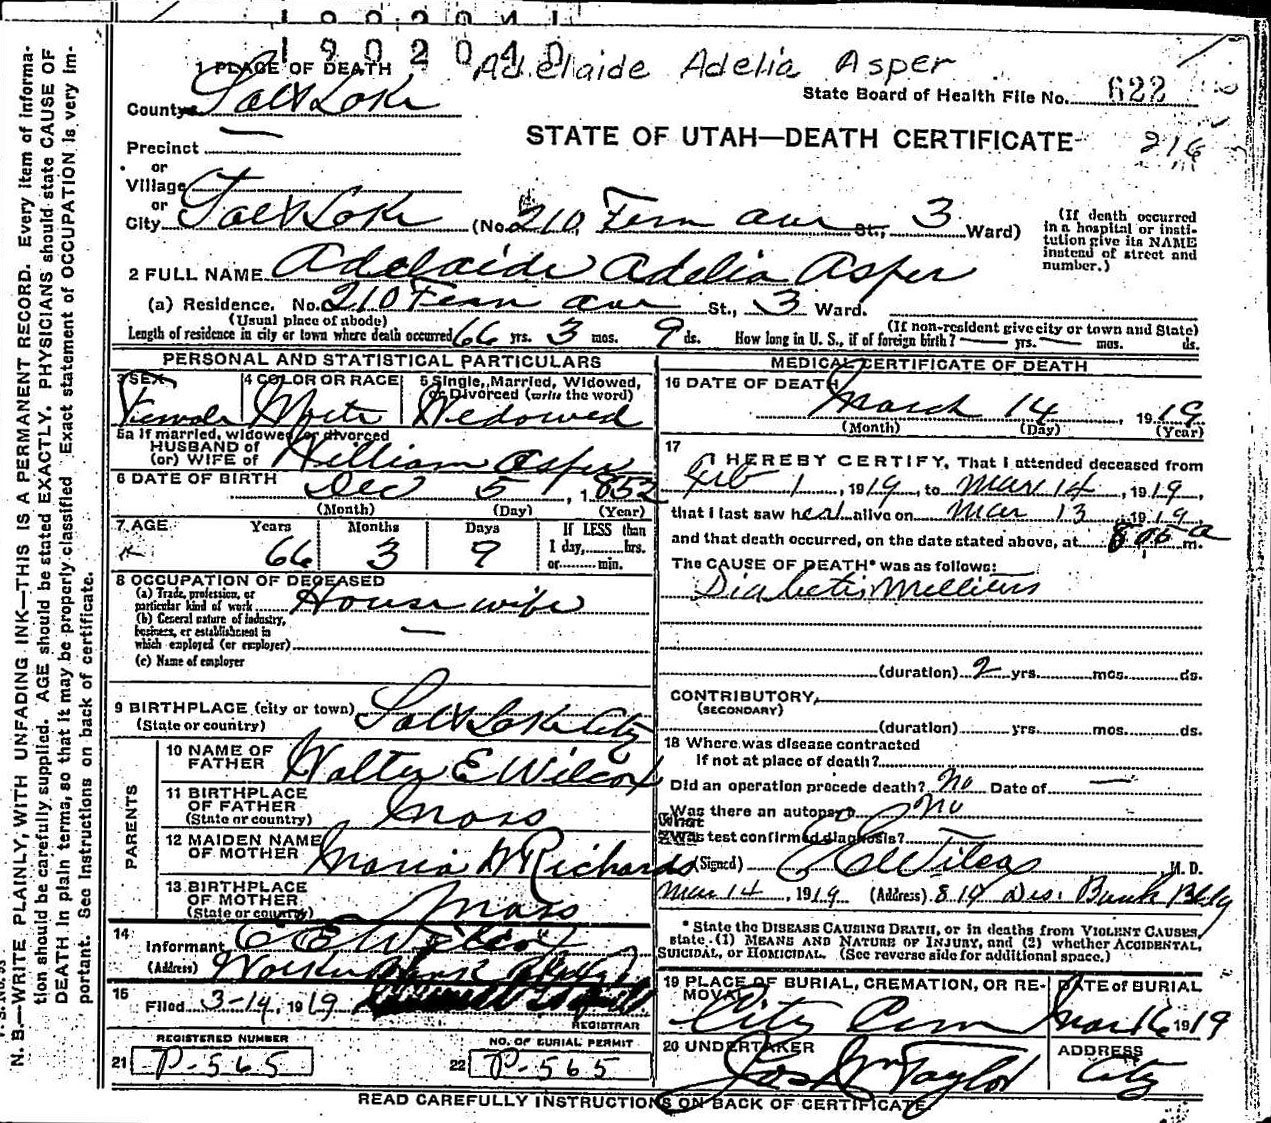 1902041
1902040
Adelaide Adelia Asper
1 PLACE OF DEATH
State Board of Health File No. 622
County Salt Lake
STATE OF UTAH—DEATH CERTIFICATE
216
Precinct —
or
Village
or
City Salt Lake (No. 210 Fern ave St., 3 Ward)
(If death occurred in a hospital or institution give its NAME instead of street and number.)
2 FULL NAME Adelaide Adelia Asper
(a) Residence. No. 210 Fern ave St., 3 Ward.
(Usual place of abode) (If non-resident give city or town and State)
Length of residence in city or town where death occurred 66 yrs. 3 mos. 9 ds. How long in U. S., if of foreign birth? — yrs. — mos. ds.
PERSONAL AND STATISTICAL PARTICULARS
3 SEX Female
4 COLOR OR RACE White
5 Single, Married, Widowed, or Divorced (write the word) Widowed
5a If married, widowed or divorced
HUSBAND of
(or) WIFE of William Asper
6 DATE OF BIRTH Dec 5, 1852
(Month) (Day) (Year)
7 AGE Years Months Days If LESS than
66 3 9 1 day, hrs.
or min.
8 OCCUPATION OF DECEASED
(a) Trade, profession, or particular kind of work House wife
(b) General nature of industry, business, or establishment in which employed (or employer) —
(c) Name of employer
9 BIRTHPLACE (city or town) Salt Lake City
(State or country)
PARENTS
10 NAME OF FATHER Walter E Wilcox
11 BIRTHPLACE OF FATHER Mass
(State or country)
12 MAIDEN NAME OF MOTHER Maria W Richards
13 BIRTHPLACE OF MOTHER Mass
(State or country)
14
Informant C E Wilcox
(Address) Walker Bank Bldg
15
Filed 3-14, 1919
REGISTRAR
REGISTERED NUMBER
21 P-565
NO. OF BURIAL PERMIT
22 P-565
MEDICAL CERTIFICATE OF DEATH
16 DATE OF DEATH
March 14, 1919
(Month) (Day) (Year)
17
I HEREBY CERTIFY, That I attended deceased from
Feb 1, 1919, to Mar 14, 1919,
that I last saw her alive on Mar 13, 1919
and that death occurred, on the date stated above, at 8 05 a m.
The CAUSE OF DEATH* was as follows:
Diabetis Mellitus
(duration) 2 yrs. mos. ds.
CONTRIBUTORY,
(SECONDARY)
(duration) yrs. mos. ds.
18 Where was disease contracted
If not at place of death?
Did an operation procede death? No Date of —
Was there an autopsy? No
What
Was test confirmed diagnosis?
(Signed) C E Wilcox M. D.
Mar 14, 1919 (Address) 814 Des. Bank Bldg
* State the DISEASE CAUSING DEATH, or in deaths from VIOLENT CAUSES,
state (1) MEANS AND NATURE OF INJURY, and (2) whether ACCIDENTAL,
SUICIDAL, or HOMICIDAL. (See reverse side for additional space.)
19 PLACE OF BURIAL, CREMATION, OR REMOVAL
City Cem
DATE of BURIAL
Mar 16 1919
20 UNDERTAKER
Jos Wm Taylor
ADDRESS
City
READ CAREFULLY INSTRUCTIONS ON BACK OF CERTIFICATE.
N. B.—WRITE PLAINLY, WITH UNFADING INK—THIS IS A PERMANENT RECORD. Every item of information should be carefully supplied. AGE should be stated EXACTLY. PHYSICIANS should state CAUSE OF DEATH in plain terms, so that it may be properly classified. Exact statement of OCCUPATION is very important. See Instructions on back of certificate.